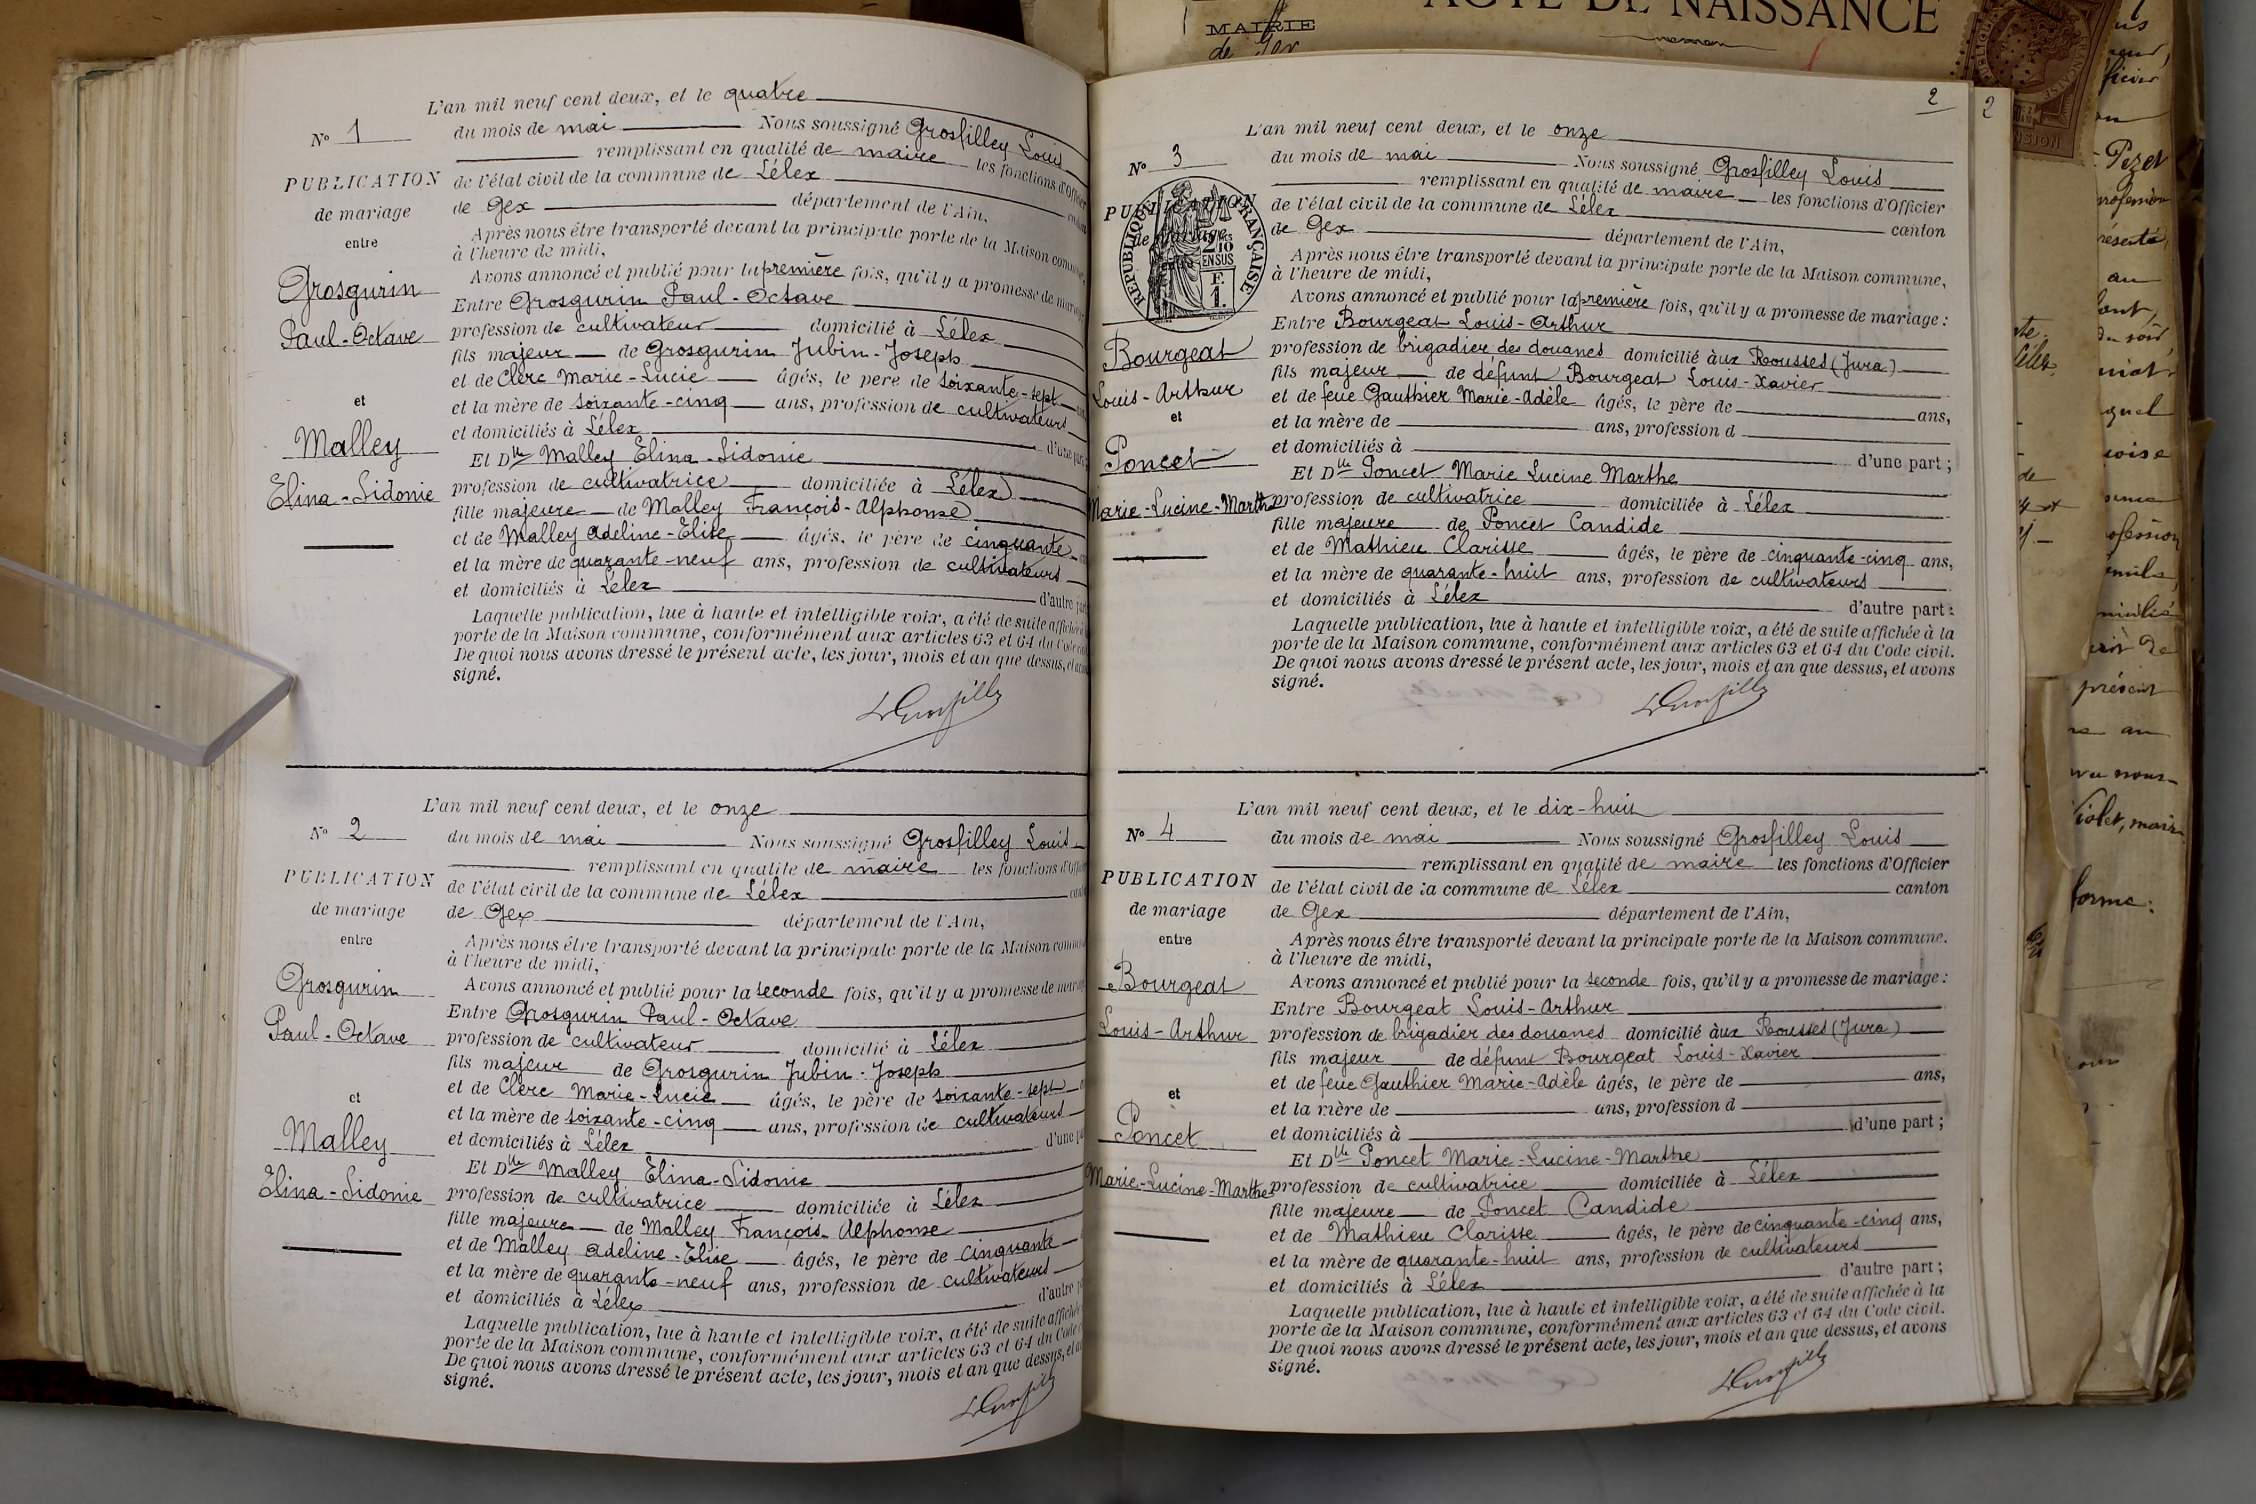 L'an mil neuf cent deux, et le quatre
N° 1
du mois de mai Nous soussigné Grosfilley Louis
remplissant en qualité de maire les fonctions d'Officier
PUBLICATION
de mariage
entre
de l'état civil de la commune de Lélex
de Gex département de l'Ain,
Après nous être transporté devant la principale porte de la Maison commune,
à l'heure de midi,
Avons annoncé et publié pour la première fois, qu'il y a promesse de mariage
Grosgurin
Paul-Octave
Entre Grosgurin Paul-Octave
profession de cultivateur domicilié à Lélex
fils majeur de Grosgurin Jubin-Joseph
et de Clerc Marie-Lucie âgés, le père de soixante-sept
et la mère de soixante-cinq ans, profession de cultivateurs
et domiciliés à Lélex d'une part
et
Malley
Elina-Sidonie
Et Dlle Malley Elina-Sidonie
profession de cultivatrice domiciliée à Lélex
fille majeure de Malley François-Alphonse
et de Malley Adeline-Elise âgés, le père de cinquante
et la mère de quarante-neuf ans, profession de cultivateurs
et domiciliés à Lélex d'autre part
Laquelle publication, lue à haute et intelligible voix, a été de suite affichée à
porte de la Maison commune, conformément aux articles 63 et 64 du Code
De quoi nous avons dressé le présent acte, les jour, mois et an que dessus, et
signé.
L Grosfilley
L'an mil neuf cent deux, et le onze
N° 2
du mois de mai Nous soussigné Grosfilley Louis
remplissant en qualité de maire les fonctions d'Officier
PUBLICATION
de mariage
entre
de l'état civil de la commune de Lélex
de Gex département de l'Ain,
Après nous être transporté devant la principale porte de la Maison commune
à l'heure de midi,
Avons annoncé et publié pour la seconde fois, qu'il y a promesse de mariage
Grosgurin
Paul-Octave
Entre Grosgurin Paul-Octave
profession de cultivateur domicilié à Lélex
fils majeur de Grosgurin Jubin-Joseph
et de Clerc Marie-Lucie âgés, le père de soixante-sept
et la mère de soixante-cinq ans, profession de cultivateurs
et domiciliés à Lélex d'une
et
Malley
Elina-Sidonie
Et Dlle Malley Elina-Sidonie
profession de cultivatrice domiciliée à Lélex
fille majeure de Malley François-Alphonse
et de Malley Adeline-Elise âgés, le père de cinquante
et la mère de quarante-neuf ans, profession de cultivateurs
et domiciliés à Lélex d'autre
Laquelle publication, lue à haute et intelligible voix, a été de suite affichée
porte de la Maison commune, conformément aux articles 63 et 64 du Code
De quoi nous avons dressé le présent acte, les jour, mois et an que dessus, et
signé.
L Grosfilley
MAIRIE
de Gex
ACTE DE NAISSANCE
2
2
L'an mil neuf cent deux, et le onze
N° 3
du mois de mai Nous soussigné Grosfilley Louis
remplissant en qualité de maire les fonctions d'Officier
PUBLICATION
de mariage
RÉPUBLIQUE FRANÇAISE
2/10
EN SUS
F.
1.
de l'état civil de la commune de Lélex canton
de Gex département de l'Ain,
Après nous être transporté devant la principale porte de la Maison commune,
à l'heure de midi,
Avons annoncé et publié pour la première fois, qu'il y a promesse de mariage :
Bourgeat
Louis-Arthur
Entre Bourgeat Louis-Arthur
profession de brigadier des douanes domicilié àux Rousses (Jura)
fils majeur de défunt Bourgeat Louis-Xavier
et de feue Gauthier Marie-Adèle âgés, le père de ans,
et la mère de ans, profession d
et domiciliés à d'une part ;
et
Poncet
Marie-Lucine-Marthe
Et Dlle Poncet Marie Lucine Marthe
profession de cultivatrice domiciliée à Lélex
fille majeure de Poncet Candide
et de Mathieu Clarisse âgés, le père de cinquante-cinq ans,
et la mère de quarante-huit ans, profession de cultivateurs
et domiciliés à Lélex d'autre part :
Laquelle publication, lue à haute et intelligible voix, a été de suite affichée à la
porte de la Maison commune, conformément aux articles 63 et 64 du Code civil.
De quoi nous avons dressé le présent acte, les jour, mois et an que dessus, et avons
signé.
L Grosfilley
L'an mil neuf cent deux, et le dix-huit
N° 4
du mois de mai Nous soussigné Grosfilley Louis
remplissant en qualité de maire les fonctions d'Officier
PUBLICATION
de mariage
entre
de l'état civil de la commune de Lélex canton
de Gex département de l'Ain,
Après nous être transporté devant la principale porte de la Maison commune.
à l'heure de midi,
Avons annoncé et publié pour la seconde fois, qu'il y a promesse de mariage :
Bourgeat
Louis-Arthur
Entre Bourgeat Louis-Arthur
profession de brigadier des douanes domicilié àux Rousses (Jura)
fils majeur de défunt Bourgeat Louis-Xavier
et de feue Gauthier Marie-Adèle âgés, le père de ans,
et la mère de ans, profession d
et domiciliés à d'une part ;
et
Poncet
Marie-Lucine-Marthe
Et Dlle Poncet Marie-Lucine-Marthe
profession de cultivatrice domiciliée à Lélex
fille majeure de Poncet Candide
et de Mathieu Clarisse âgés, le père de cinquante-cinq ans,
et la mère de quarante-huit ans, profession de cultivateurs
et domiciliés à Lélex d'autre part ;
Laquelle publication, lue à haute et intelligible voix, a été de suite affichée à la
porte de la Maison commune, conformément aux articles 63 et 64 du Code civil.
De quoi nous avons dressé le présent acte, les jour, mois et an que dessus, et avons
signé.
L Grosfilley
Pezet
profession
au
quel
présent
Violet, maire
forme :